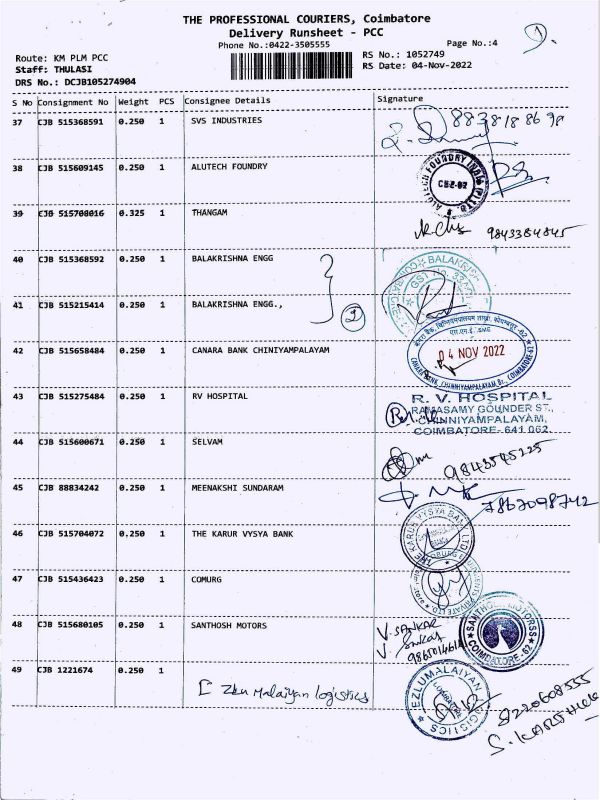 THE PROFESSIONAL COURIERS, Coimbatore
Delivery Runsheet - PCC
Phone No.:0422-3505555
Page No.:4
Route: KM PLM PCC
RS No.: 1052749
Staff: THULASI
RS Date: 04-Nov-2022
DRS No.: DCJB105274904
S No Consignment No Weight PCS Consignee Details Signature
37 CJB 515368591 0.250 1 SVS INDUSTRIES
8838188698
38 CJB 515609145 0.250 1 ALUTECH FOUNDRY
ALUTECH FOUNDRY
CBE-62
39 CJB 515708016 0.325 1 THANGAM
9843384845
40 CJB 515368592 0.250 1 BALAKRISHNA ENGG
41 CJB 515215414 0.250 1 BALAKRISHNA ENGG.,
2
42 CJB 515658484 0.250 1 CANARA BANK CHINIYAMPALAYAM
04 NOV 2022
CANARA BANK, CHINNIYAMPALAYAM Br., COIMBATORE-62
43 CJB 515275484 0.250 1 RV HOSPITAL
R. V. HOSPITAL
RAMASAMY GOUNDER ST.,
CHINNIYAMPALAYAM,
COIMBATORE- 641 062.
44 CJB 515600671 0.250 1 SELVAM
9843545225
45 CJB 88834242 0.250 1 MEENAKSHI SUNDARAM
7867098742
46 CJB 515704072 0.250 1 THE KARUR VYSYA BANK
THE KARUR VYSYA BANK LTD
47 CJB 515436423 0.250 1 COMURG
48 CJB 515680105 0.250 1 SANTHOSH MOTORS
V. SANKAR
SANTHOSH MOTORSS
COIMBATORE-62
49 CJB 1221674 0.250 1
Malaiyan logistics
EZLUMALAIYAN LOGISTICS
8220608555
S. KARTHICK